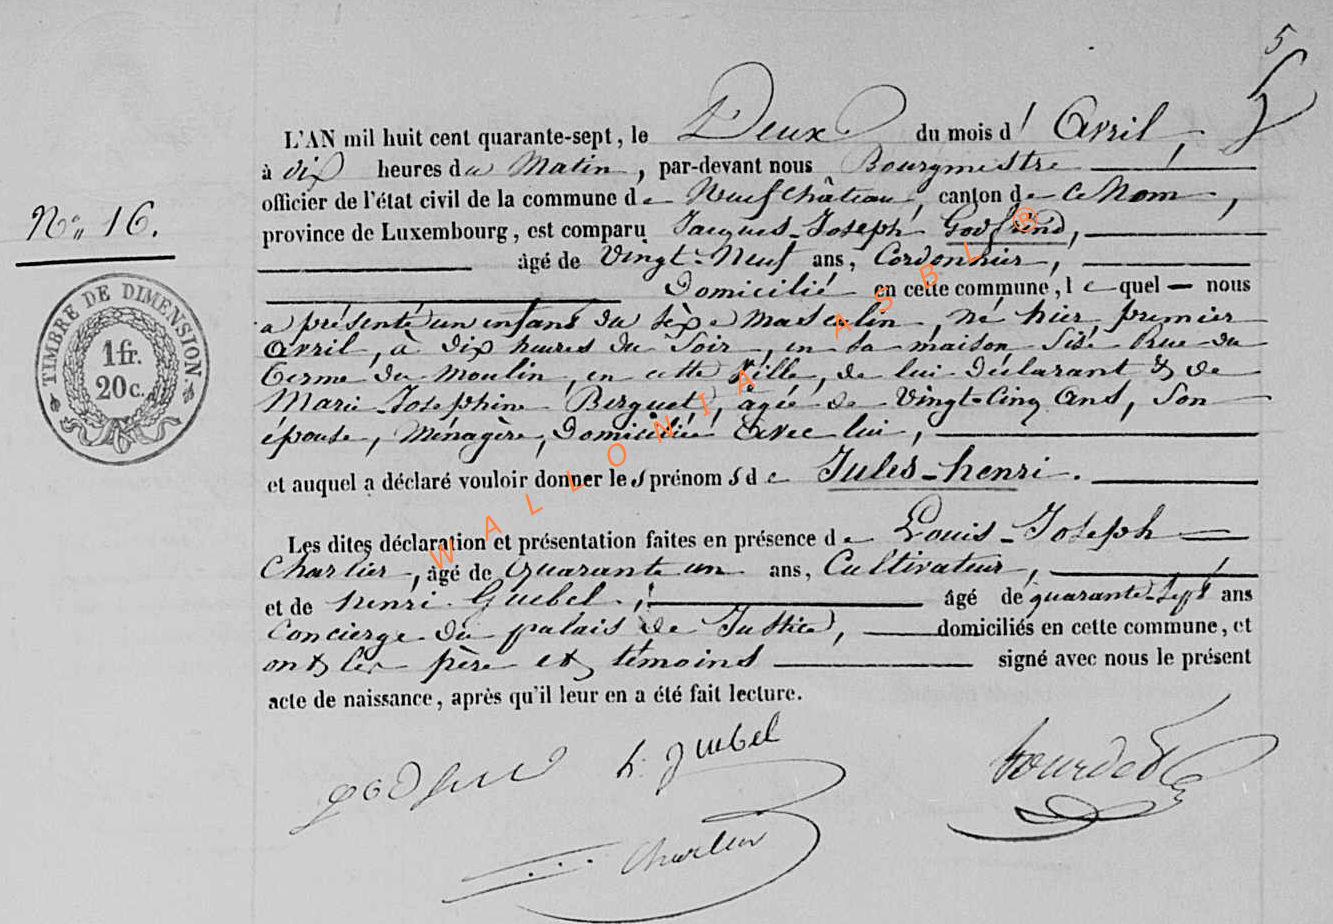 5
L'AN mil huit cent quarante-sept, le Deux du mois d' Avril,
à dix heures du Matin, par-devant nous Bourgmestre
officier de l'état civil de la commune de Neufchâteau, canton de ce Nom,
Nº 16.
province de Luxembourg, est comparu Jacques-Joseph Godfrind,
âgé de Vingt-Neuf ans, Cordonnier,
Domicilié en cette commune, lequel — nous
TIMBRE DE DIMENSION
1 fr.
20 c.
a présenté un enfant du sèxe Masculin, né hier, premier
Avril, à dix heures du Soir, en sa maison Sise Rue du
Terme du Moulin, en cette Ville, de lui déclarant & de
Marie-Josephine Berguet, agée de Vingt-Cinq Ans, Son
épouse, Ménagère, Domiciliée Avec lui,
et auquel a déclaré vouloir donner les prénoms de Jules-henri.
Les dites déclaration et présentation faites en présence de Louis-Joseph
Charlier, âgé de Quarante un ans, Cultivateur,
et de henri Guebel, âgé de quarante-Sept ans
Concierge du palais de Justice, domiciliés en cette commune, et
ont les père et témoins signé avec nous le présent
acte de naissance, après qu'il leur en a été fait lecture.
godfrind h. guebel
Charlier
WALLONIA ASBL ®